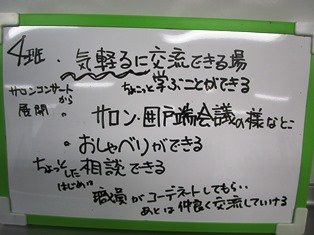 4班 ・気軽るに交流できる場
ちょこっと学ぶことができる
サロンコンサートから
展開 。
サロン・囲戸端会議の様なとこ
・おしゃべりができる
ちょっとした相談できる
はじめは
職員がコーデネートしてもらい
あとは仲良く交流していける